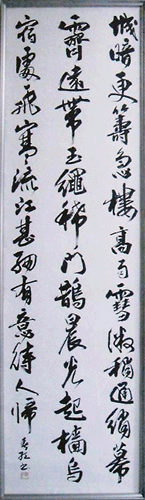 城暗更籌急樓高雨雪微稍通綃幕
霽遠帶玉繩稀門鵲晨光起檣烏
宿處飛寒流江甚細有意待人歸